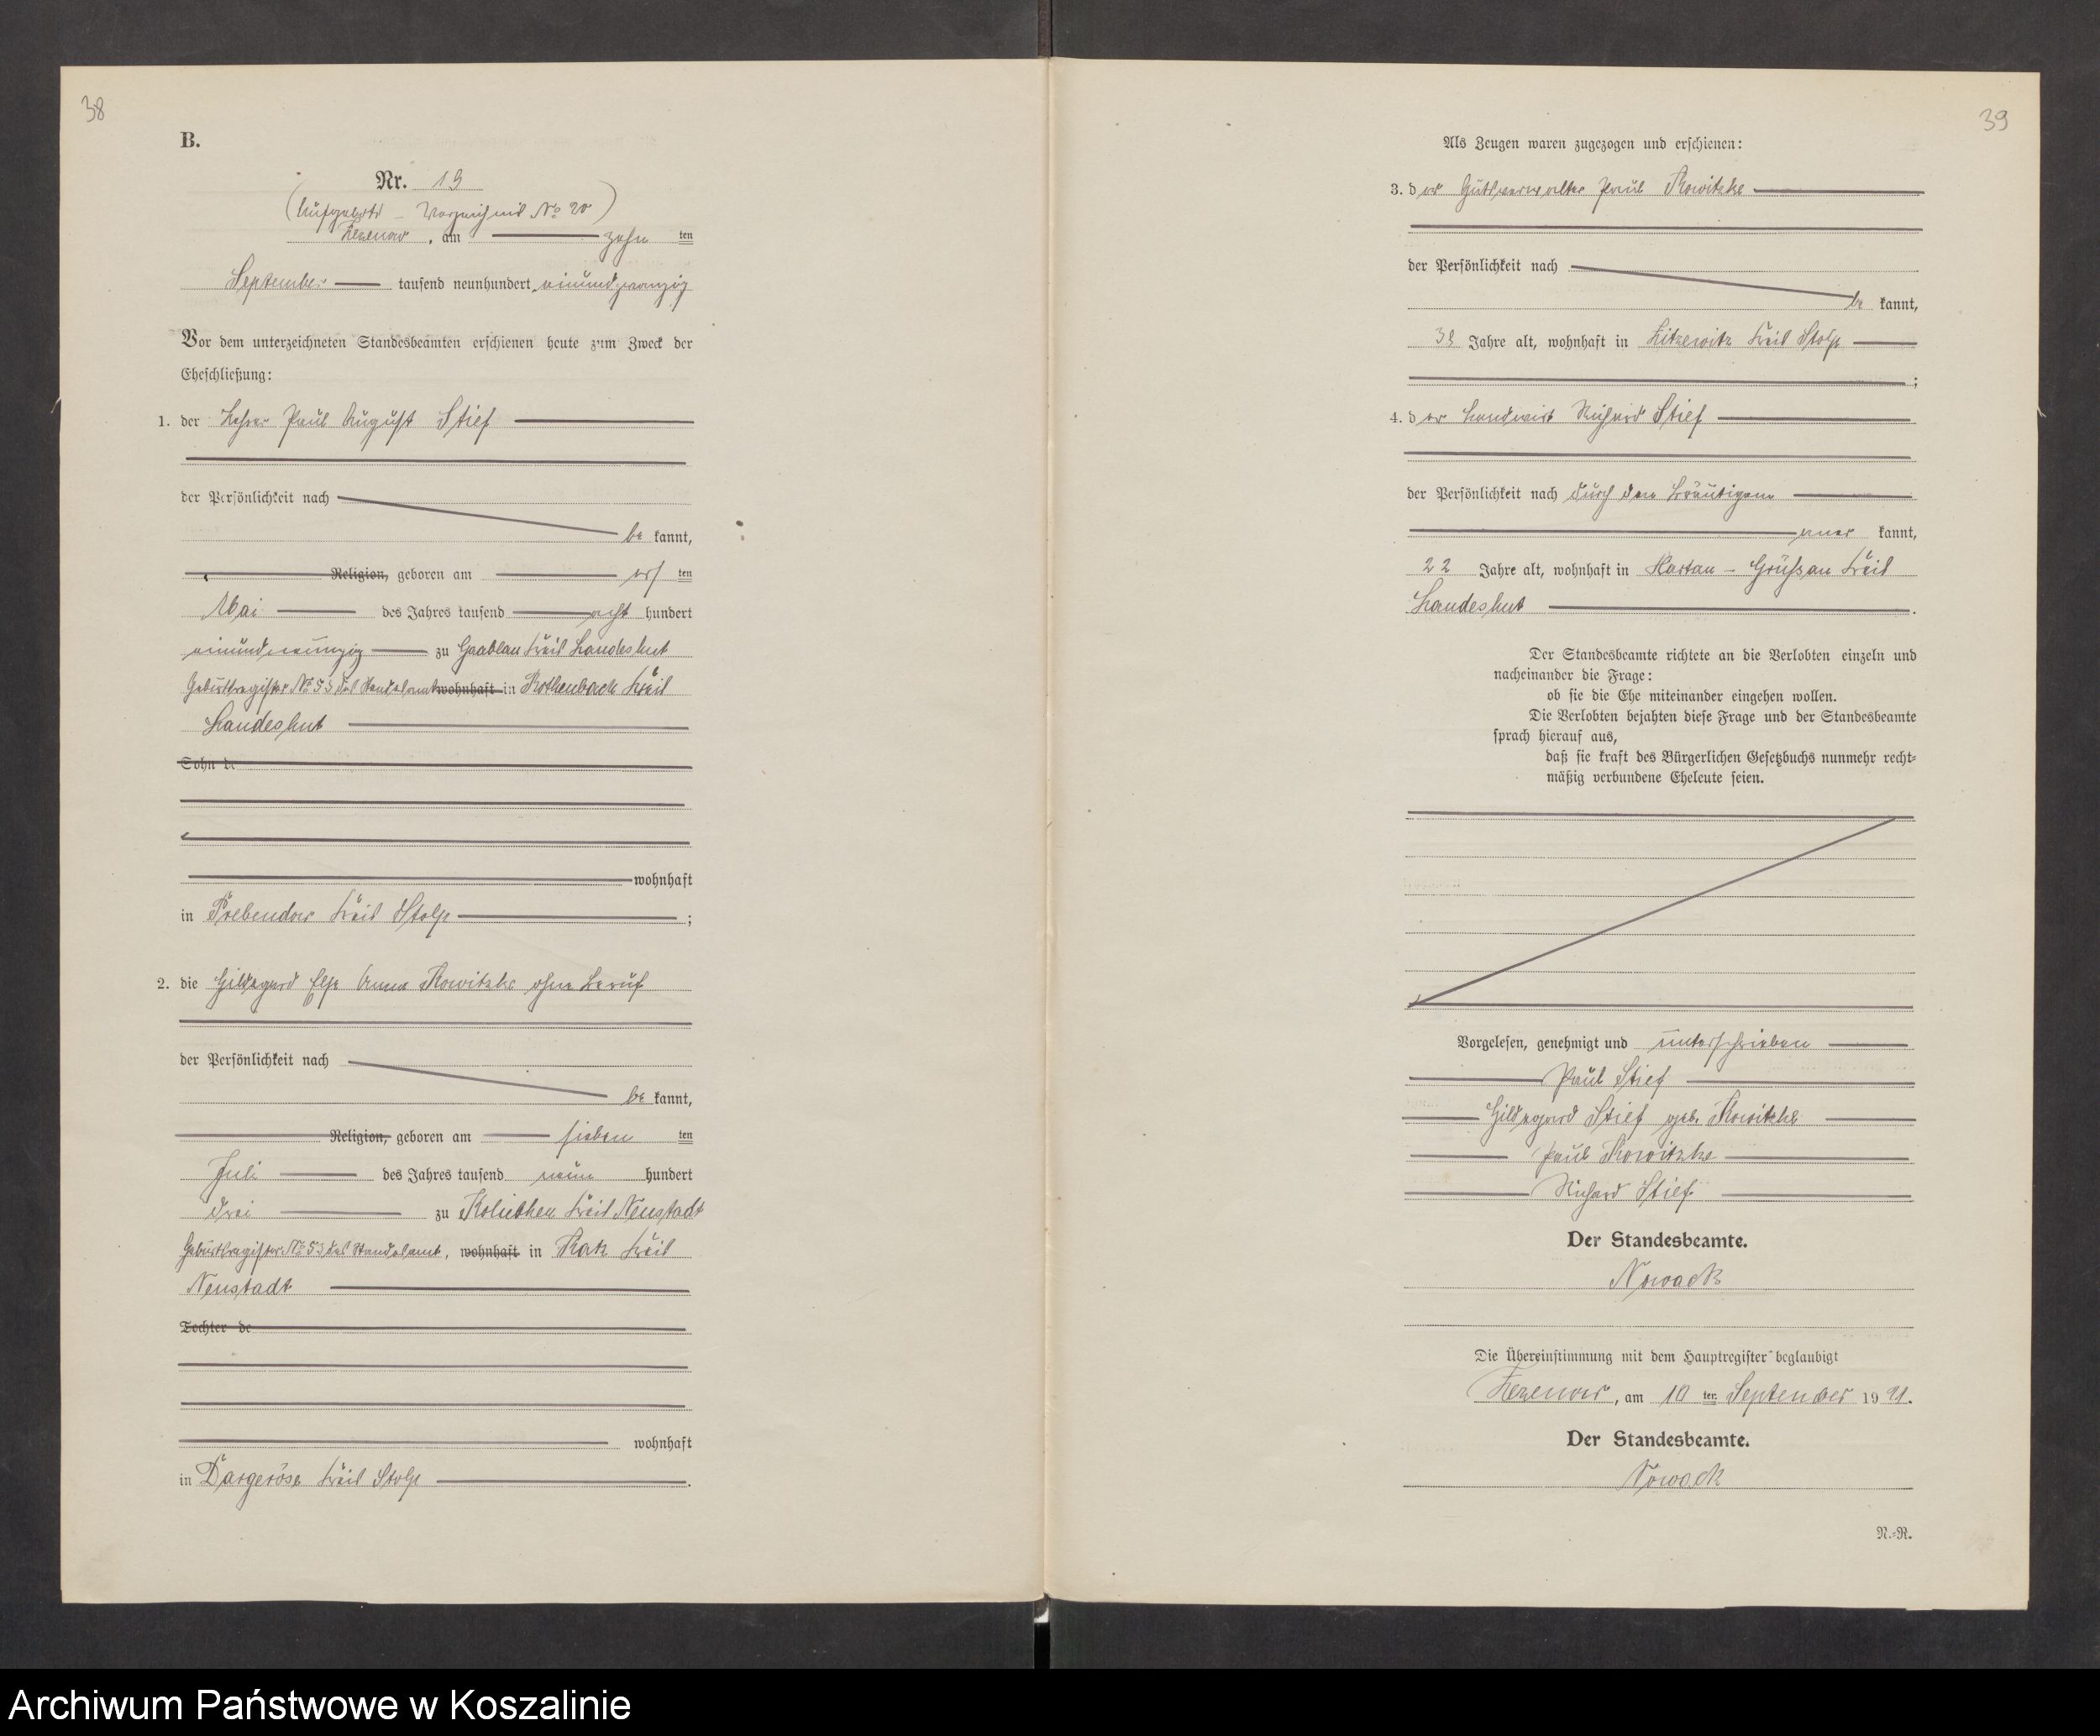 38
B.
Nr. 19
(Aufgebots-Verzeichnis No 20)
Zezenow, am zehn ten
September tausend neunhundert einundzwanzig
Vor dem unterzeichneten Standesbeamten erschienen heute zum Zweck der
Eheschließung:
1. der Lehrer Paul August Stief
der Persönlichkeit nach
be kannt,
Religion, geboren am elf ten
Mai des Jahres tausend acht hundert
einundneunzig zu Gaablau Kreis Landeshut
Geburtsregister No 53 des Standesamts wohnhaft in Rothenbach Kreis
Landeshut
Sohn de
wohnhaft
in Prebendow Kreis Stolp ;
2. die Hildegard Else Anna Kowitzke ohne Beruf
der Persönlichkeit nach
be kannt,
Religion, geboren am sieben ten
Juli des Jahres tausend neun hundert
drei zu Koliebken Kreis Neustadt
Geburtsregister No 53 des Standesamt, wohnhaft in Katz Kreis
Neustadt
Tochter de
wohnhaft
in Dargeröse Kreis Stolp .
39
Als Zeugen waren zugezogen und erschienen:
3. der Gutsverwalter Paul Kowitzke
der Persönlichkeit nach
be kannt,
39 Jahre alt, wohnhaft in Zitzewitz Kreis Stolp
;
4. der Landwirt Richard Stief
der Persönlichkeit nach durch den Bräutigam
aner kannt,
22 Jahre alt, wohnhaft in Hartau-Grüssau Kreis
Landeshut .
Der Standesbeamte richtete an die Verlobten einzeln und
nacheinander die Frage:
ob sie die Ehe miteinander eingehen wollen.
Die Verlobten bejahten diese Frage und der Standesbeamte
sprach hierauf aus,
daß sie kraft des Bürgerlichen Gesetzbuchs nunmehr recht-
mäßig verbundene Eheleute seien.
Vorgelesen, genehmigt und unterschrieben
Paul Stief
Hildegard Stief geb. Kowitzke
Paul Kowitzke
Richard Stief
Der Standesbeamte.
Nowack
Die Übereinstimmung mit dem Hauptregister beglaubigt
Zezenow, am 10 ten September 19 21.
Der Standesbeamte.
Nowack
N.-R.
Archiwum Państwowe w Koszalinie